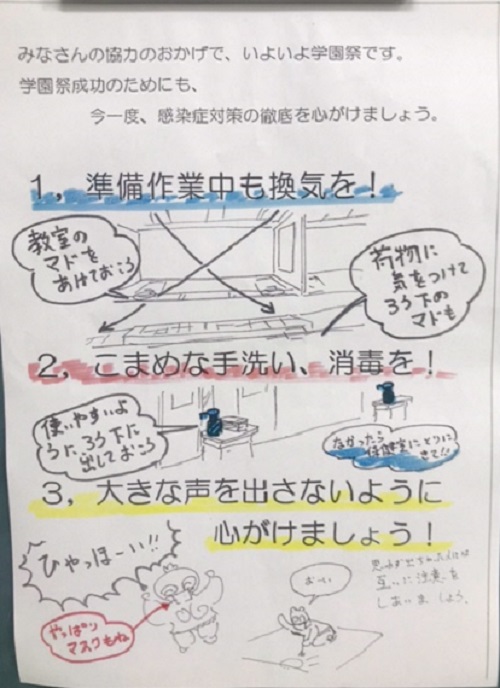 みなさんの協力のおかげで、いよいよ学園祭です。
学園祭成功のためにも、
今一度、感染症対策の徹底を心がけましょう。
1，準備作業中も換気を！
教室の
マドを
あけておこう
荷物に
気をつけて
ろう下の
マドも
2，こまめな手洗い、消毒を！
使いやすいよ
うに、ろう下に
出しておこう
なかったら
保健室にとりに
きて!!
3，大きな声を出さないように
心がけましょう！
ひゃっほーい!!
やっぱり
マスクもね
おーい
互いに注意を
しあいましょう。